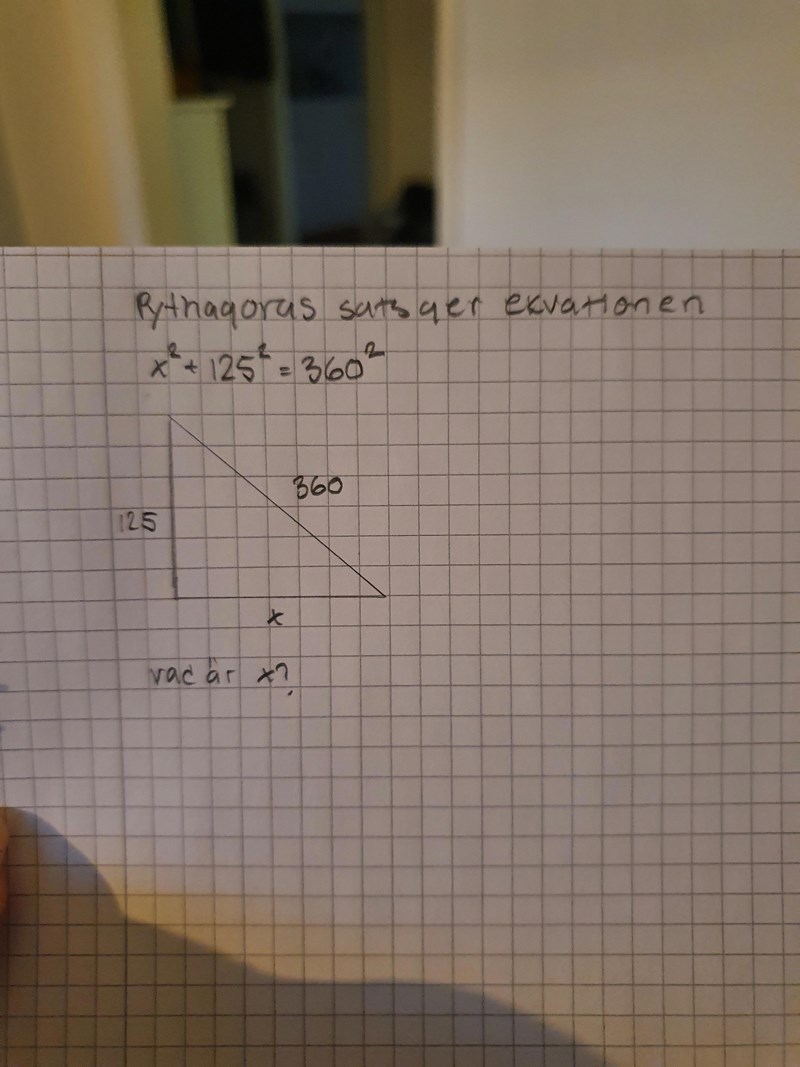 Pythagoras sats ger ekvationen
x² + 125² = 360²
360
125
x
vad är x?